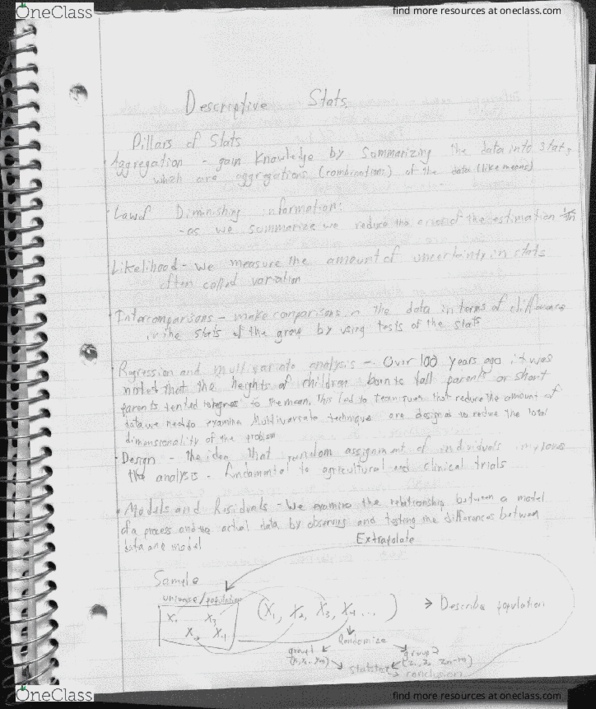 OneClass
find more resources at oneclass.com
Descriptive Stats
Pillars of Stats
Aggregation - gain knowledge by summarizing the data into stats,
which are aggregations (combinations) of the data (like means)
Law of Diminishing information:
-as we summarize we reduce the error of the estimation
Likelihood - we measure the amount of uncertainty in stats
often called variation
Intercomparisons - make comparisons in the data in terms of differences
in the stats of the group by using tests of the stats
Regression and multivariate analysis - Over 100 years ago it was
noted that the heights of children born to tall parents or short
parents tended to the mean, this led to that reduce the amount of
data we need to examine Multivariate technique are designed to reduce the total
dimensionality of the problem
Design - the idea that random assignment of individuals improves
the analysis. fundamental to agricultural and clinical trials
Models and Residuals - We examine the relationship between a model
of a process and the actual data by observing and testing the differences between
data and model
Extrapolate
Sample
universe/population
(X1, X2, X3, X4 ... ) → Describe population
Randomize
group 1 group 2
conclusion
OneClass
find more resources at oneclass.com